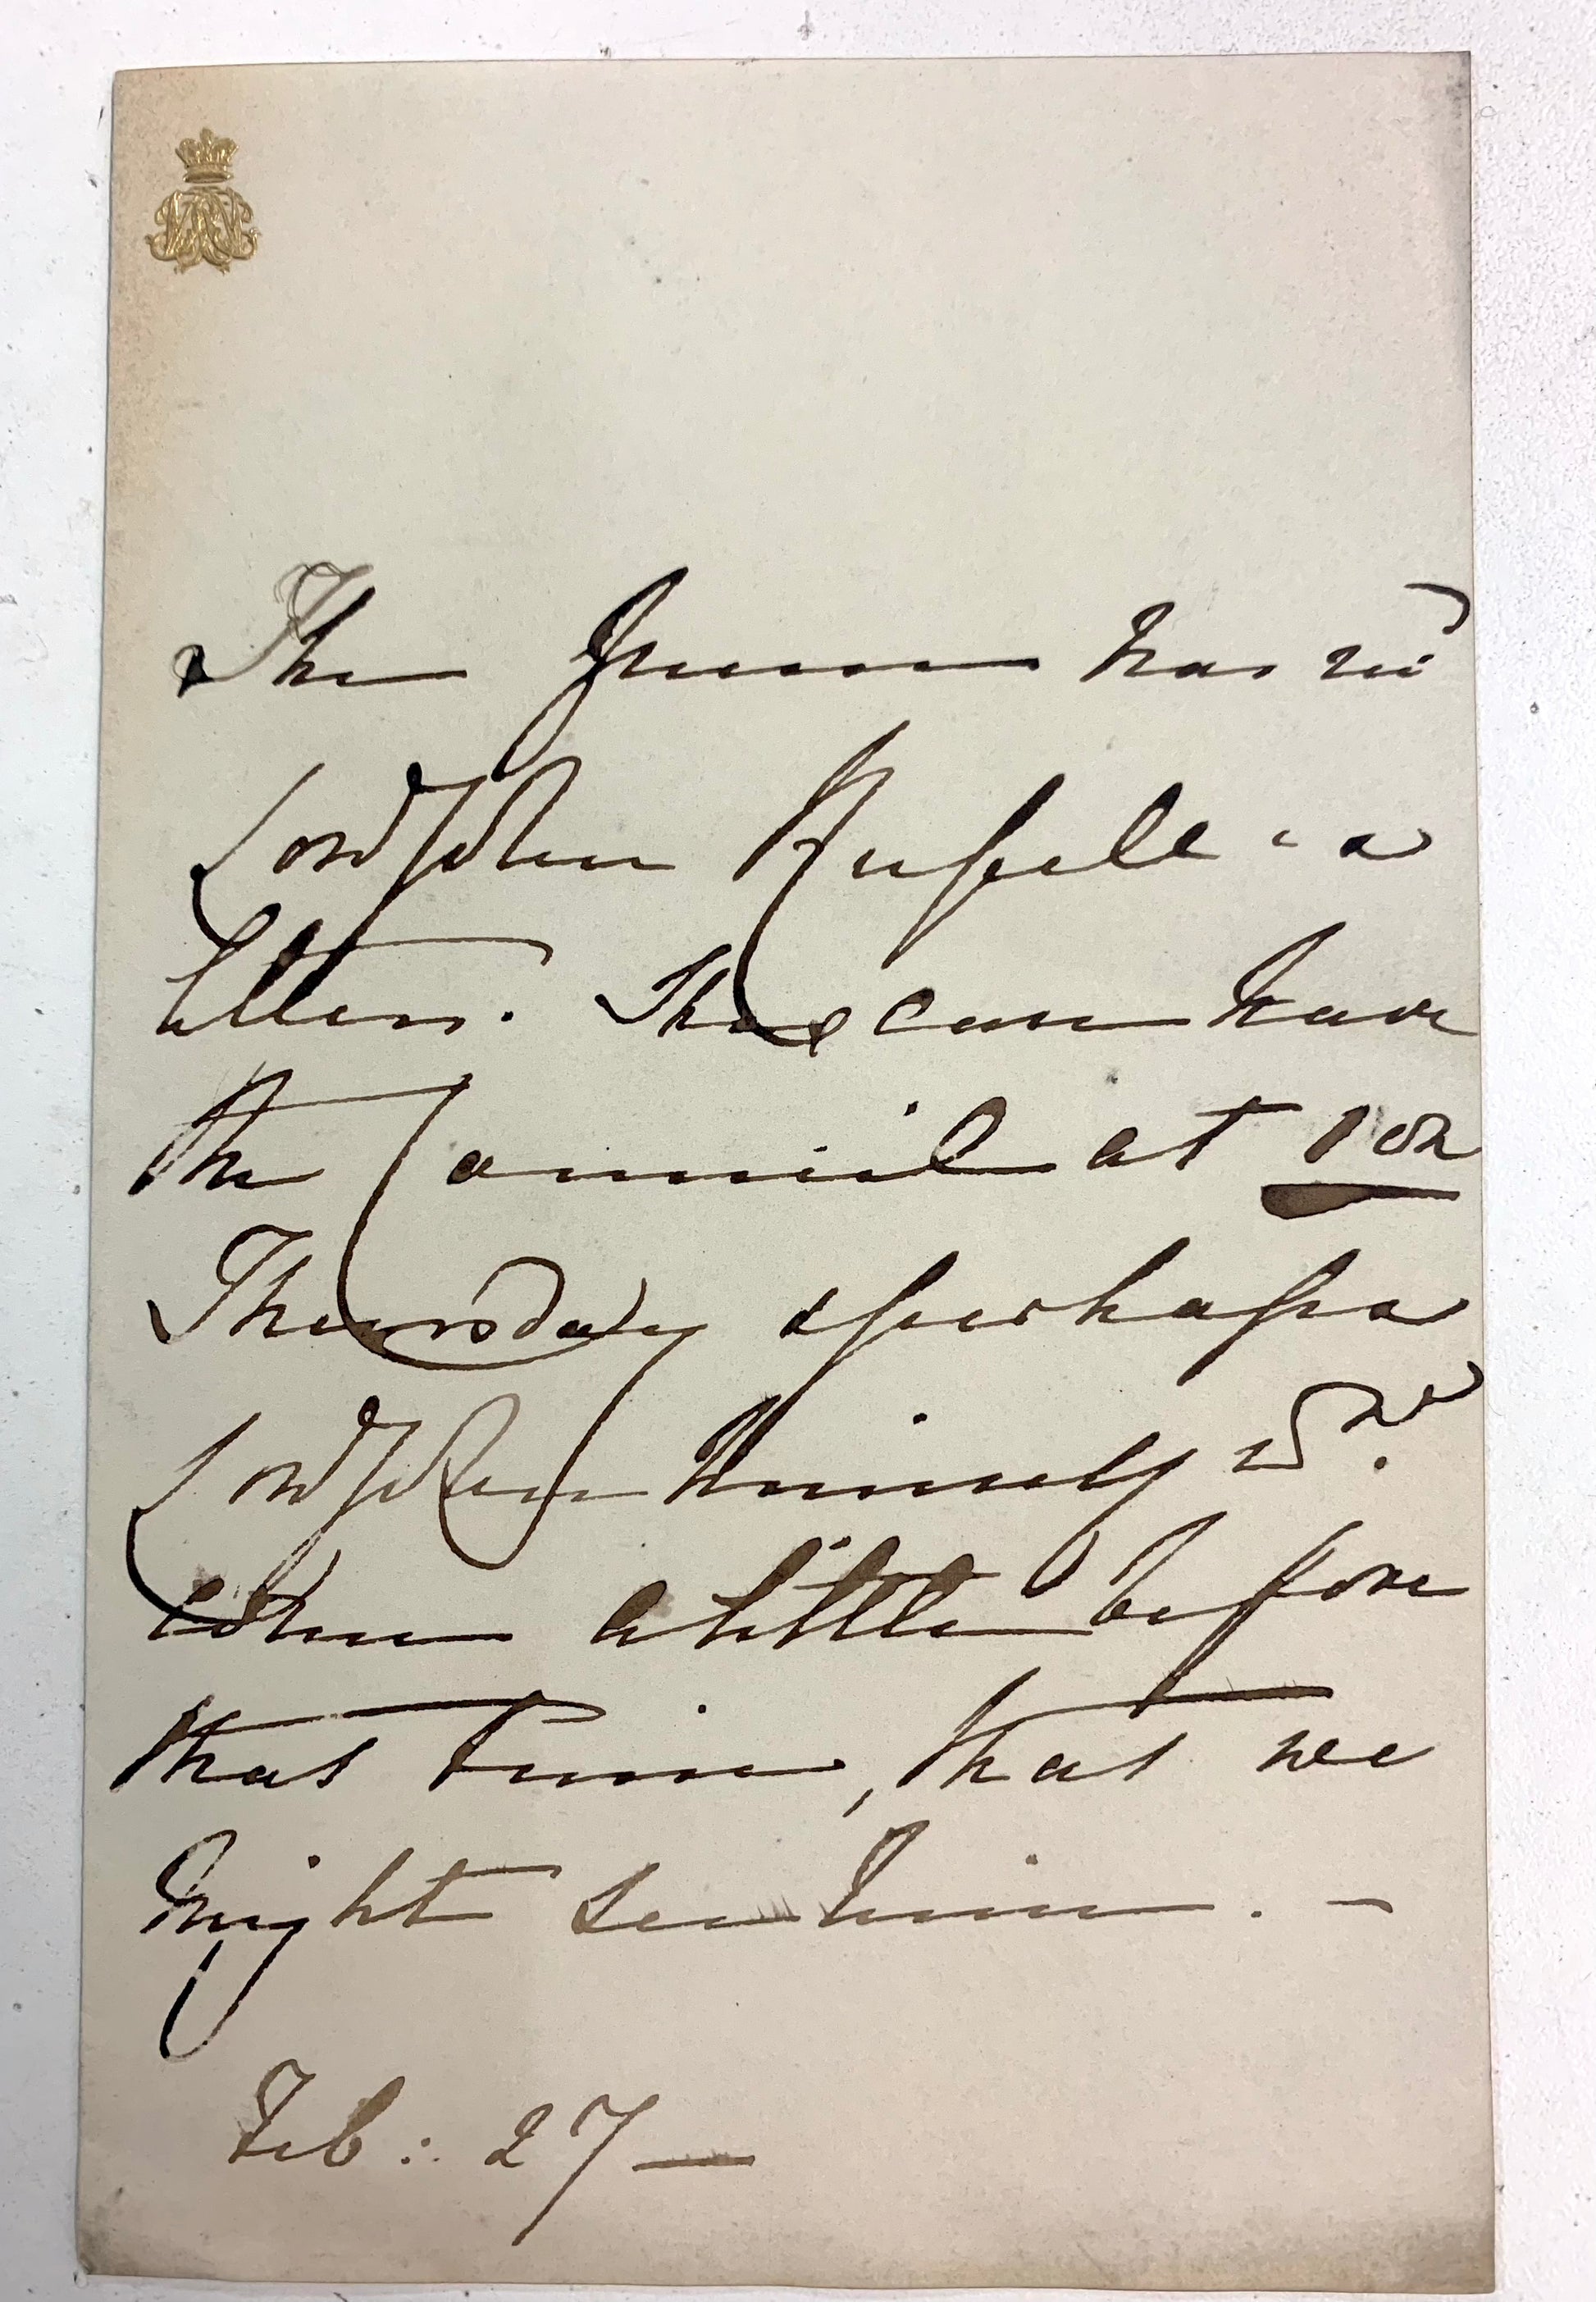 The Queen has recd
Lord John Russell's
letters. She can have
the Council at 1 on
Thursday & perhaps
Lord John himself wd.
come a little before
that time, that we
might see him. –
Feb: 27 —